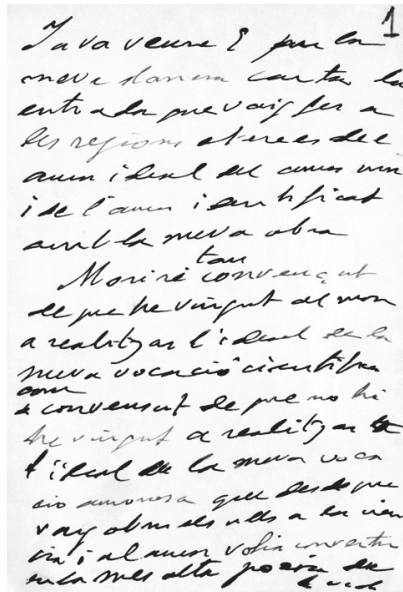 1
Ja va veure E per la
meva darrera carta la
entrada que vaig fer a
les regions eterees del
amor ideal del amor mon
i de l'amor identificat
amb la meva obra
tan
Moriré convençut
de que he vingut al mon
a realitzar l'ideal de la
meva vocació cientifica
com
convensut de que no hi
he vingut a realitzar
l'ideal de la meva voca
cio amorosa que desde que
vaig obrir els ulls a la cien
cia i al amor volia convertir
en la mes alta poesia de
la vida